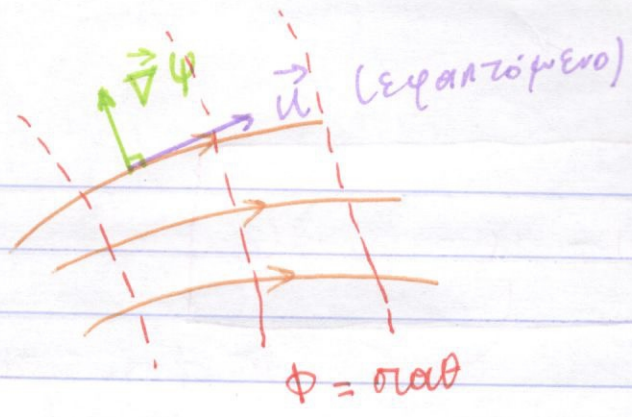 ∇⃗ψ
u⃗ (εφαπτόμενο)
ϕ = σταθ